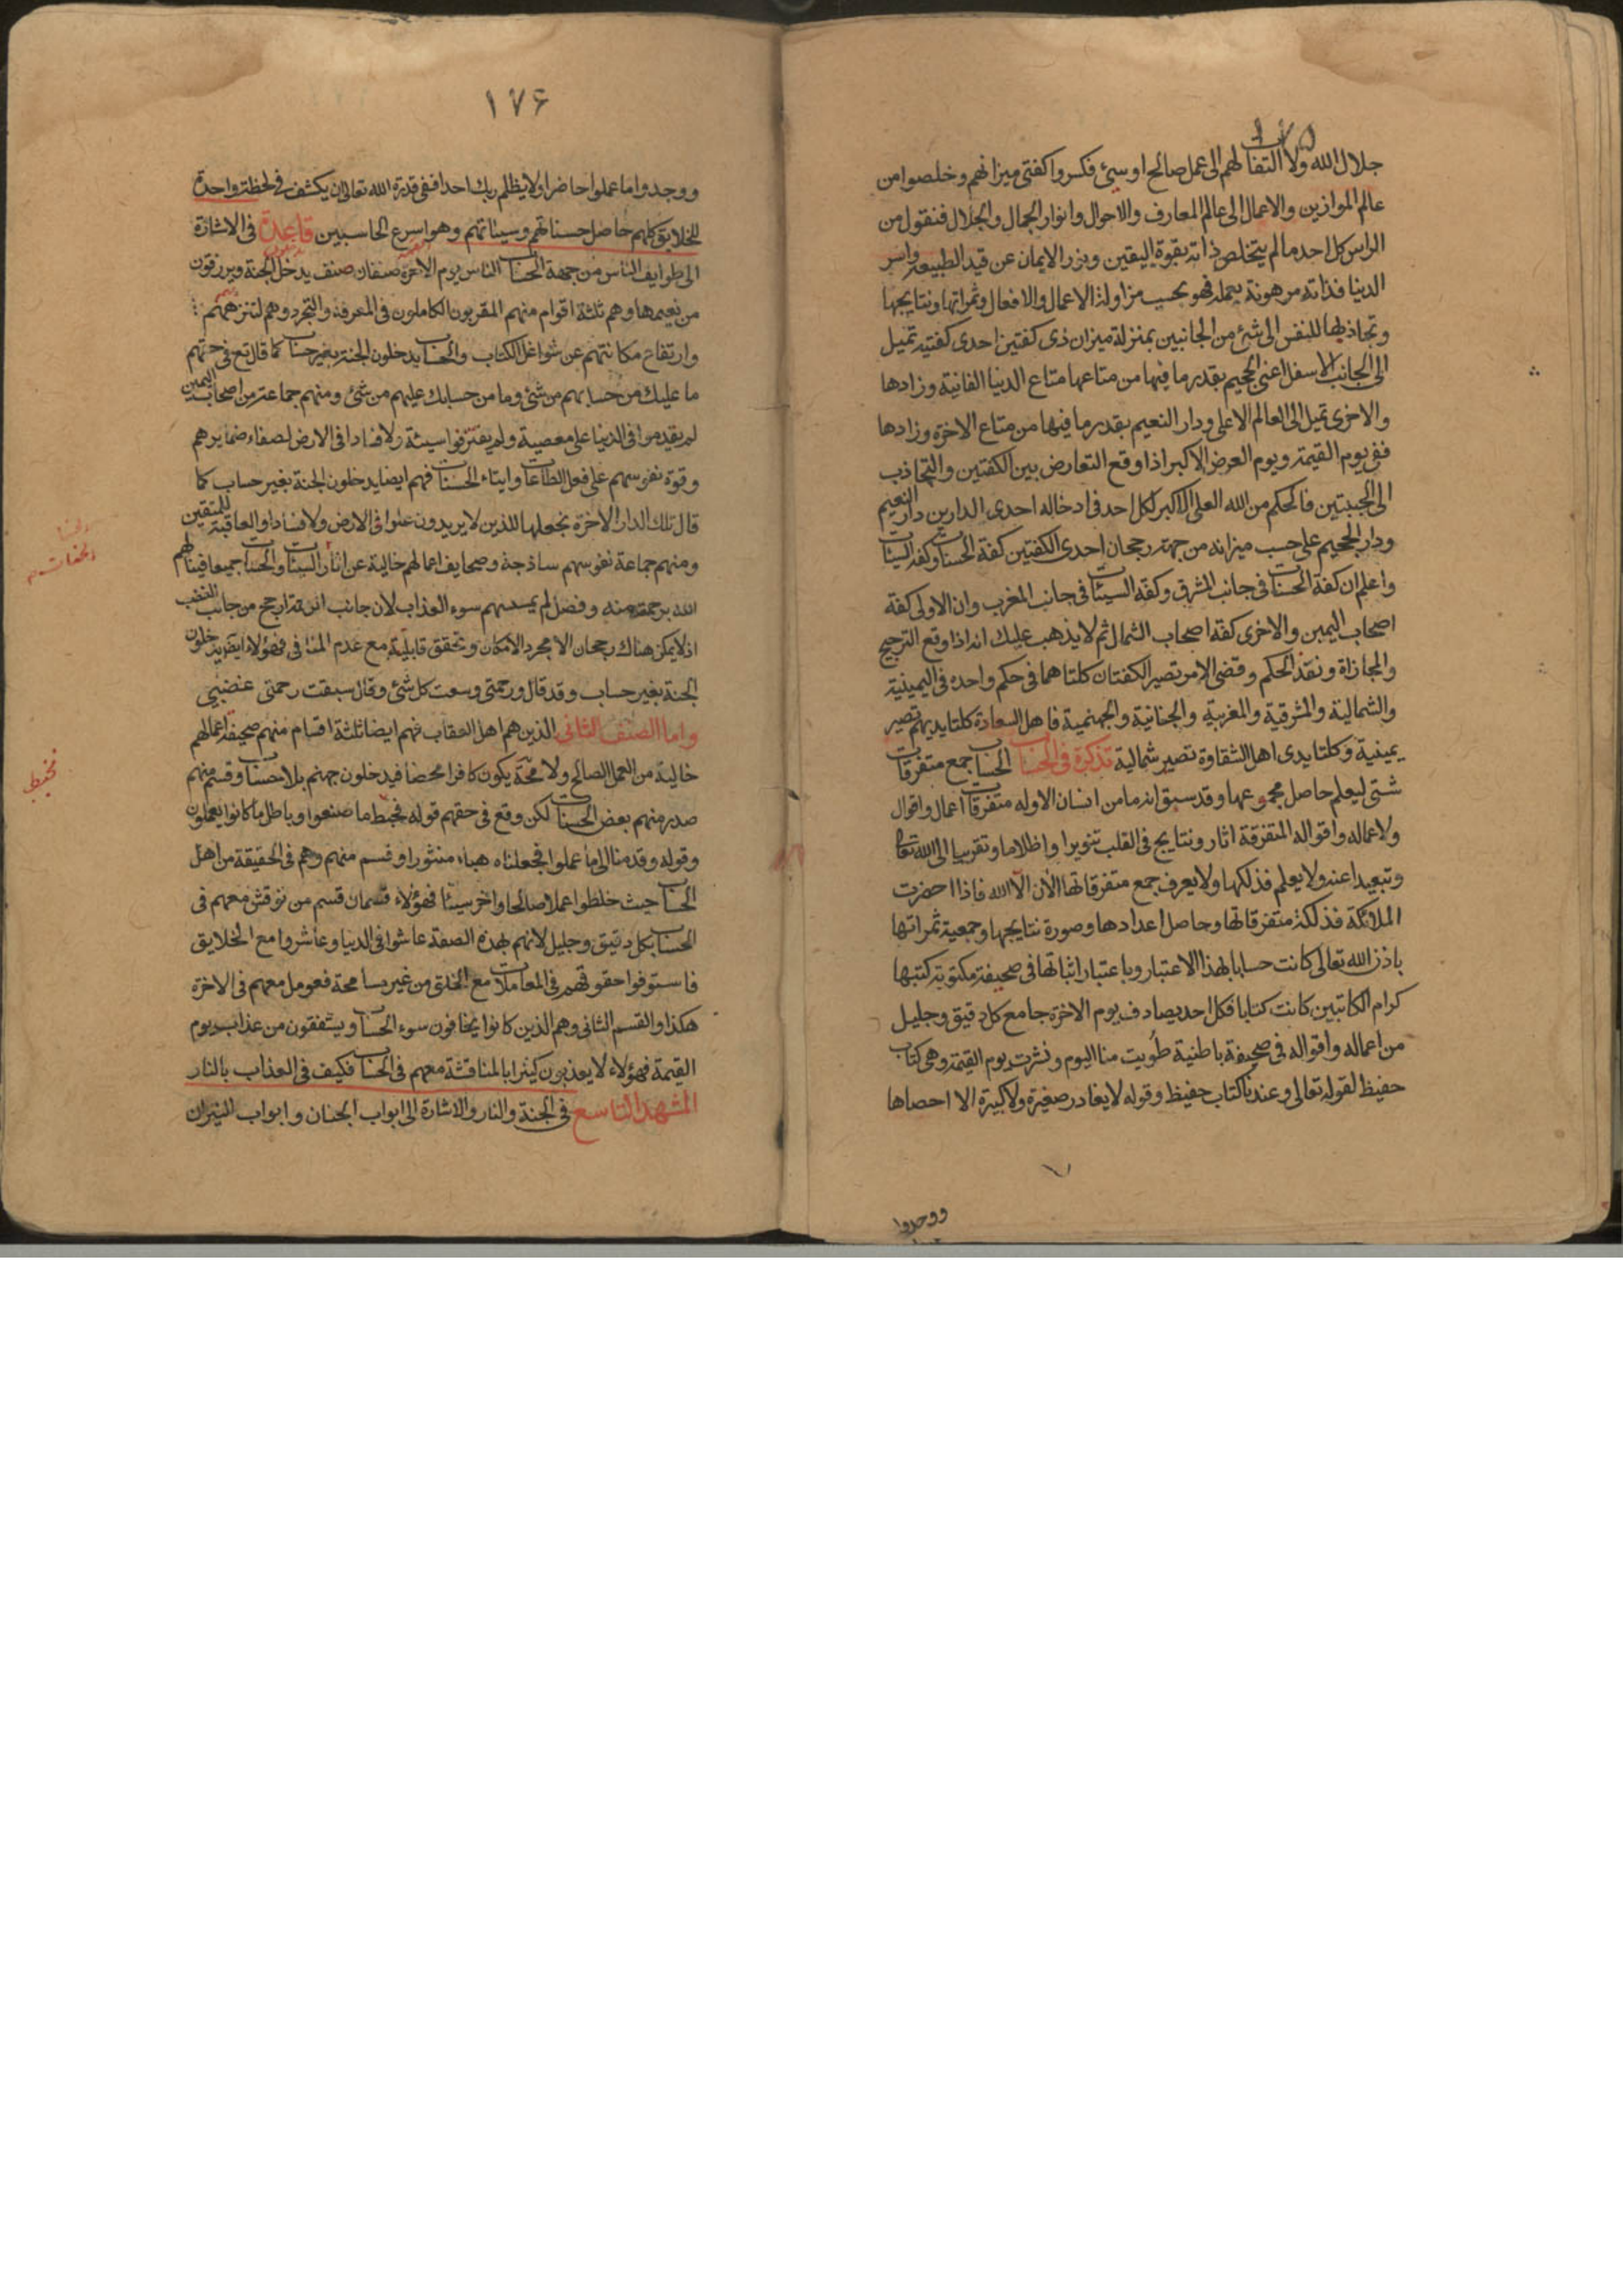 ١٧٥
جلال الله ولا التفات لهم الى عمل صالح او سيئ فكسروا كفتى ميزانهم وخلصوا من
عالم الموازين والاعمال الى عالم المعارف والاحوال وانوار الجمال والجلال فنقول من
الراس كل احد ما لم يتخلص ذاته بقوة اليقين ونور الايمان عن قيد الطبيعة واسر
الدنيا فذاته مرهونة بعمله فهو بحسب مزاولة الاعمال والافعال وثمراتها ونتايجها
وتجاذبها للنفس الى شئ من الجانبين بمنزلة ميزان ذى كفتين احدى كفتيه تميل
الى الجانب الاسفل اعنى الجحيم بقدر ما فيها من متاعها متاع الدنيا الفانية وزادها
والاخرى تميل الى العالم الاعلى ودار النعيم بقدر ما فيها من متاع الاخرة وزادها
ففى يوم القيمة ويوم العرض الاكبر اذا وقع التعارض بين الكفتين والتجاذب
الى الجنبتين فالحكم من الله العلى الاكبر لكل احد فى ادخاله احدى الدارين دار النعيم
ودار الجحيم على حسب ميزانه من جهة رجحان احدى الكفتين كفة الحسنات وكفة السيئات
واعلم ان كفة الحسنات فى جانب المشرق وكفة السيئات فى جانب المغرب وان الاولى كفة
اصحاب اليمين والاخرى كفة اصحاب الشمال ثم لا يذهب عليك انه اذا وقع الترجيح
والمجازاة ونفذ الحكم وقضى الامر تصير الكفتان كلتاهما فى حكم واحدة فى اليمينية
والشمالية والمشرقية والمغربية والجنانية والجهنمية فاهل السعادة كلتا يديهم تصير
يمينية وكلتا يدى اهل الشقاوة تصير شمالية تذكرة فى الحساب الحساب جمع متفرقات
شتى ليعلم حاصل مجموعها وقد سبق انه ما من انسان الا وله متفرقات اعمال واقوال
ولاعماله واقواله المتفرقة اثار ونتايج فى القلب تنويرا واظلاما وتقريبا الى الله تعالى
وتبعيدا عنه ولا يعلم فذلكها ولا يعرف جمع متفرقاتها الان الا الله فاذا احضرت
الملائكة فذلكة متفرقاتها وحاصل اعدادها وصورة نتايجها وجمعية ثمراتها
باذن الله تعالى كانت حسابا بهذا الاعتبار وباعتبار اثباتها فى صحيفة مكتوبة كتبها
كرام الكاتبين كانت كتابا فكل احد يصادف يوم الاخرة جامع كل دقيق وجليل
من اعماله واقواله فى صحيفة باطنية طويت منا اليوم ونشرت يوم القيمة وهى كتاب
حفيظ لقوله تعالى وعندنا كتاب حفيظ وقوله لا يغادر صغيرة ولا كبيرة الا احصاها
ووجدوا
١٧۶
ووجدوا ما عملوا حاضرا ولا يظلم ربك احدا ففى قدرة الله تعالى ان يكشف فى لحظة واحدة
للخلايق كلهم حاصل حسناتهم وسيئاتهم وهو اسرع الحاسبين قاعدة فى الاشارة
الى طوايف الناس من جهة الحساب الناس يوم الاخرة صنفان صنف يدخل الجنة ويرزقون
من نعيمها وهم ثلثة اقوام منهم المقربون الكاملون فى المعرفة والتجرد وهم لتنزههم
وارتفاع مكانتهم عن شواغل الكتاب والحساب يدخلون الجنة بغير حساب كما قال تع فى حقهم
ما عليك من حسابهم من شئ وما من حسابك عليهم من شئ ومنهم جماعة من اصحاب اليمين
لم يقدموا فى الدنيا على معصية ولم يقترفوا سيئة ولا فسادا فى الارض لصفاء ضمايرهم
وقوة نفوسهم على فعل الطاعات وايتاء الحسنات فهم ايضا يدخلون الجنة بغير حساب كما
قال تلك الدار الاخرة نجعلها للذين لا يريدون علوا فى الارض ولا فسادا والعاقبة للمتقين
ومنهم جماعة نفوسهم ساذجة وصحايف اعمالهم خالية عن اثار السيئات والحسنات جميعا فينالهم
الله برحمة منه وفضل لم يمسسهم سوء العذاب لان جانب الرحمة ارجح من جانب الغضب
اذ لا يمكن هناك رجحان الا مجرد الامكان وتحقق قابلية مع عدم المنافى فهؤلاء ايضا يدخلون
الجنة بغير حساب وقد قال ورحمتى وسعت كل شئ وقال سبقت رحمتى غضبى
واما الصنف الثانى الذين هم اهل العقاب فهم ايضا ثلثة اقسام منهم صحيفة اعمالهم
خالية من العمل الصالح ولا محة يكون كافرا محضا فيدخلون جهنم بلا حساب وقسم منهم
صدر منهم بعض الحسنات لكن وقع فى حقهم قوله فحبط ما صنعوا وباطل ما كانوا يعملون
وقوله وقدمنا الى ما عملوا فجعلناه هباء منثورا وقسم منهم وهم فى الحقيقة من اهل
الحساب حيث خلطوا عملا صالحا واخر سيئا فهؤلاء قسمان قسم من نوقش معهم فى
الحساب بكل دقيق وجليل لانهم بهذه الصفة عاشوا فى الدنيا وعاشروا مع الخلايق
فاستوفوا حقوقهم فى المعاملات مع الخلق من غير مسامحة فعومل معهم فى الاخرة
هكذا والقسم الثانى وهم الذين كانوا يخافون سوء الحساب ويشفقون من عذاب يوم
القيمة فهؤلاء لا يعذبون كثيرا بالمناقشة معهم فى الحساب فكيف فى العذاب بالنار
المشهد التاسع فى الجنة والنار والاشارة الى ابواب الجنان وابواب النيران